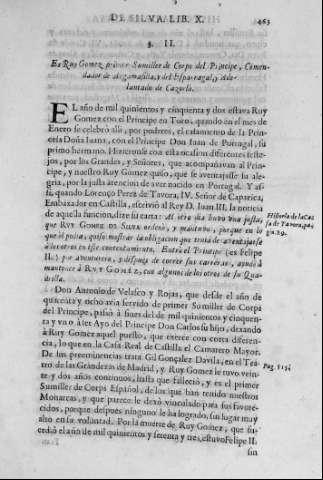 DE SILVA. LIB. X. 463
§. II.
Es Ruy Gomez primer Sumiller de Corps del Principe, Comen-
dador de Argamasilla, y del Esparragal, y Ade-
lantado de Cazorla.
EL año de mil quinientos y cinquenta y dos estava Ruy
Gomez con el Principe en Toro, quando en el mes de
Enero se celebrò alli, por poderes, el casamiento de la Prin-
cesa Doña Juana, con el Principe Don Juan de Portugal, su
primo hermano. Hizieronse con esta ocasion diferentes feste-
jos, por los Grandes, y Señores, que acompañavan al Prin-
cipe, y nuestro Ruy Gomez quiso, que se aventajasse su ale-
gria, por la justa atencion de aver nacido en Portugal. Y as-
si, quando Lorenço Perez de Tavora, IV. Señor de Caparica,
Embaxador en Castilla, escriviò al Rey D. Juan III. la noticia
de aquella funcion, dize su carta: Al otro dia huvo una justa,
que RUY GOMEZ DE SILVA ordenò, y mantuvo, porque en lo
que èl podia, quiso mostrar la obligacion que tenia de aventajarse
à los otros en este contentamiento. Entrò el Principe (es Felipe
II.) por aventurero, y despues de correr sus carreras, ayudò à
mantener à RUY GOMEZ, con algunos de los otros de su Qua-
drilla.
Historia de la Ca-
sa de Tavora, pa-
gin. 29.
Don Antonio de Velasco y Rojas, que desde el año de
quarenta y ocho avia servido de primer Sumiller de Corps
del Principe, passò à fines del de mil quinientos y cinquen-
ta y uno à ser Ayo del Principe Don Carlos su hijo, dexando
à Ruy Gomez aquel puesto, que exerce con corta diferen-
cia, lo que en la Casa Real de Castilla el Camarero Mayor.
De sus preeminencias trata Gil Gonçalez Davila, en el Tea-
tro de las Grandezas de Madrid, y Ruy Gomez le tuvo vein-
te y dos años continuos, hasta que falleciò, y es el primer
Sumiller de Corps Español, de los que han tenido nuestros
Monarcas, y que parece le dexò vinculado para sus Favore-
cidos, porque despues ninguno le ha logrado, sin lugar muy
alto en su voluntad. Por la muerte de Ruy Gomez, que su-
cediò el año de mil quinientos y setenta y tres, estuvo Felipe II.
Pag. 315.
sin